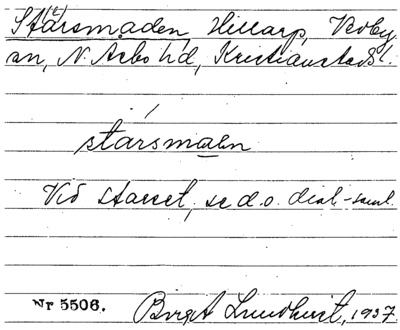 Stårsmaden, Hillarp, Röby
sn, N. Åsbo hd, Kristianstads l.
stårsmaen
Vid starret, se d.o. dial.-saml.
Nr 5506.
Birgit Lundkvist, 1937.